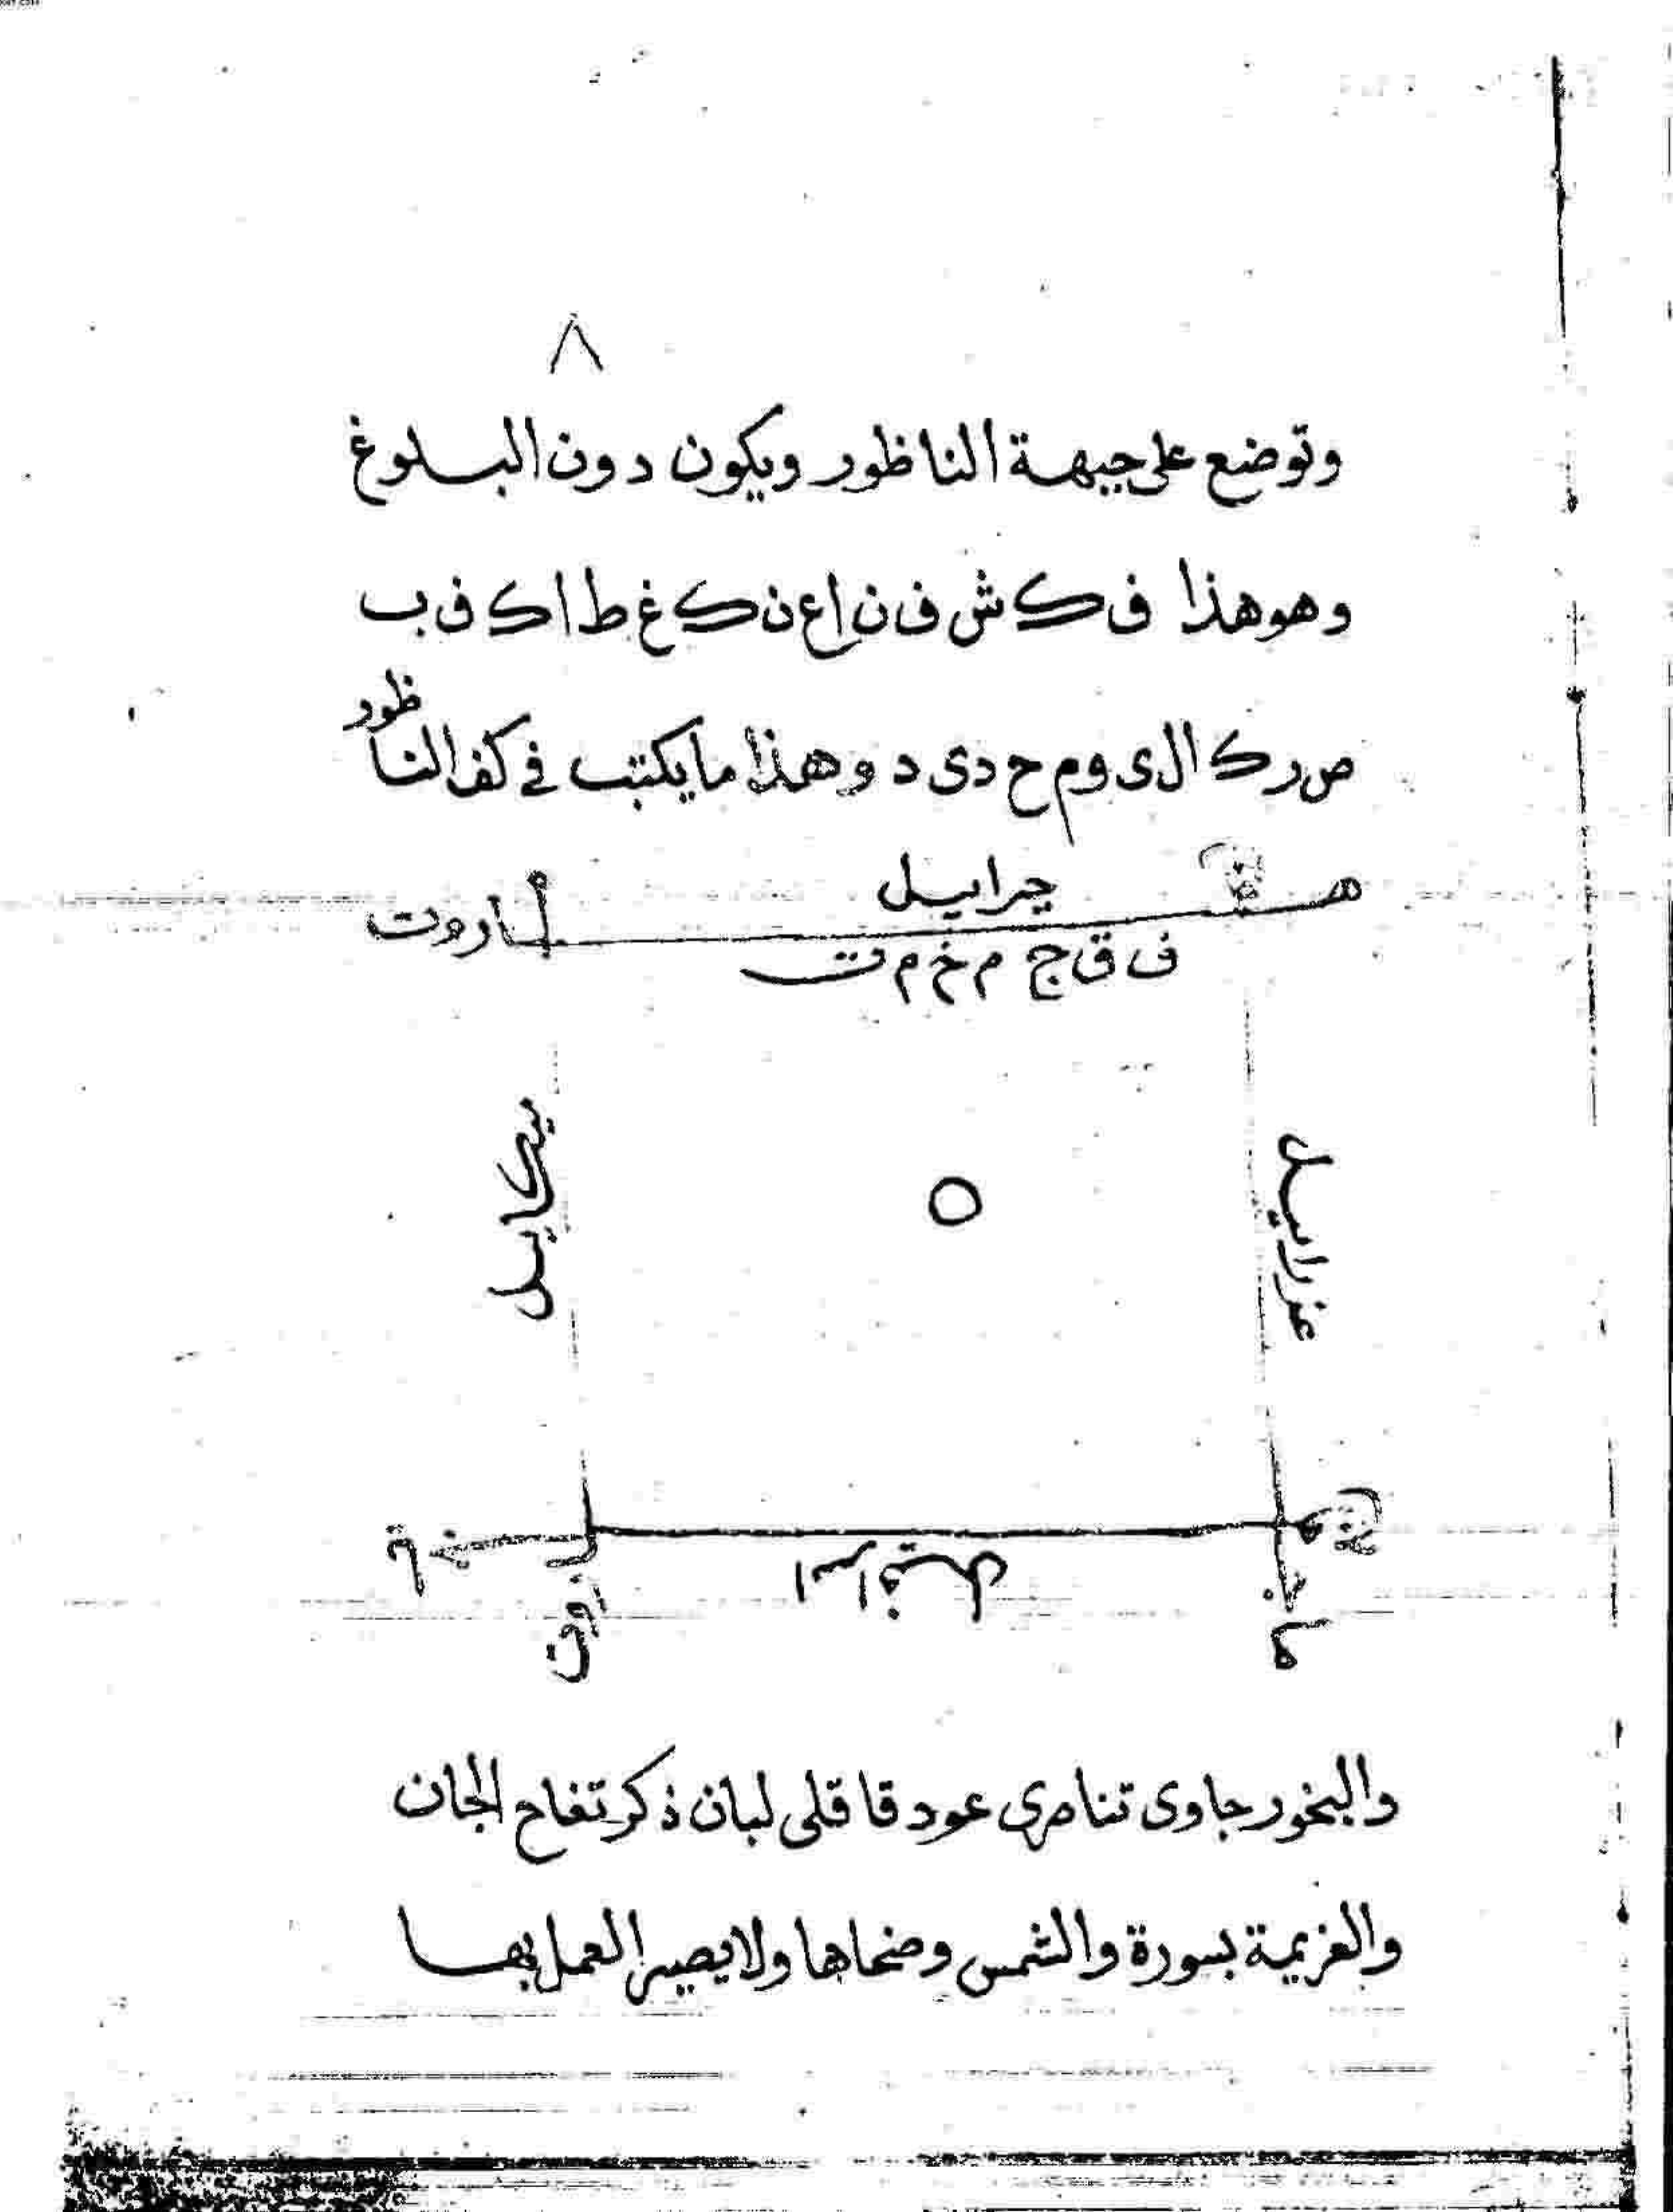 ٨
وتوضع على جبهة الناظور ويكون دون البلوغ
وهو هذا ف ك ش ف ن ا ع ن ك غ ط ا ك ف ب
ص ر ك ا ل ى و م ح د ى د وهذا ما يكتب في كف الناظور
جرايىل
ماروت
ف ق ج م خ م ت
ميكاىيل
عزراىيل
اسرافيل
والبخور جاوى تناصرى عود قاقلى لبان ذكر تفاح الجان
والعزيمة بسورة والشمس وضحاها ولا يصير العمل بها